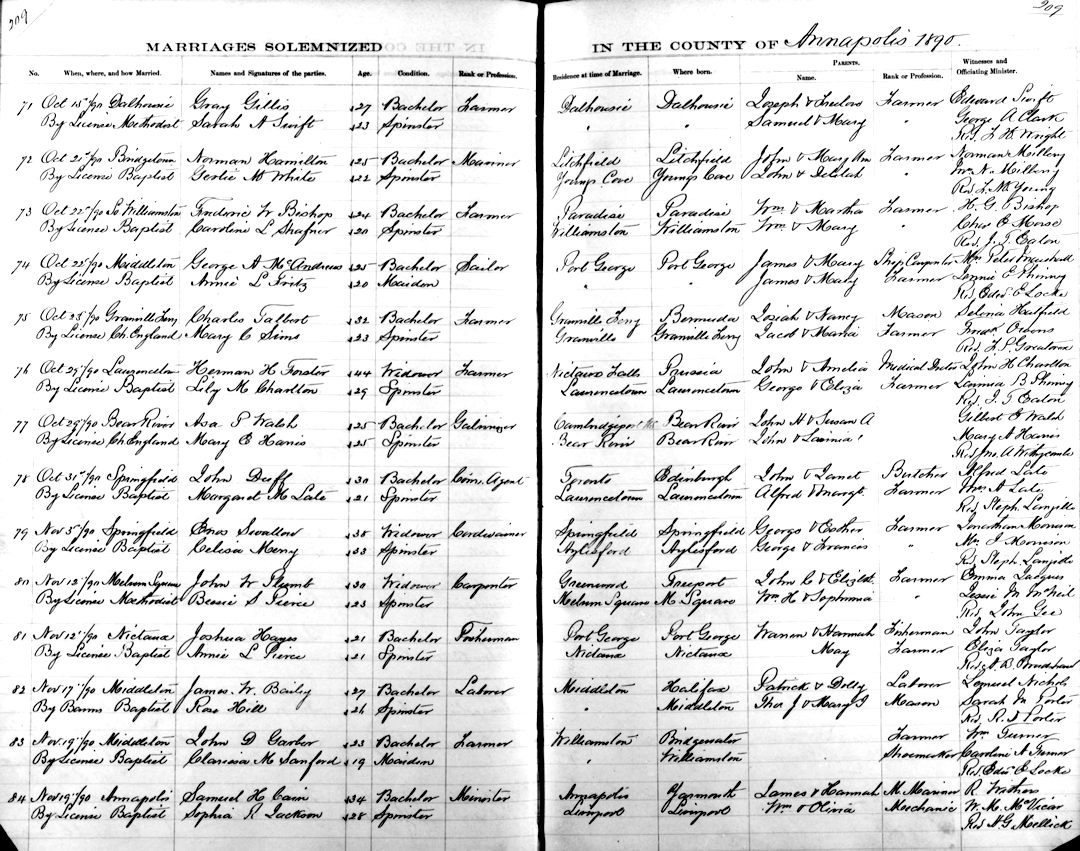 209
209
MARRIAGES SOLEMNIZED
IN THE COUNTY OF Annapolis 1890.
No. When, where, and how Married. Names and Signatures of the parties. Age. Condition. Rank or Profession. Residence at time of Marriage. Where born. PARENTS. Name. Rank or Profession. Witnesses and Officiating Minister.
71 Oct 15"/90 Dalhousie Gray Gillis 27 Bachelor Farmer Dalhousie Dalhousie Joseph & Farmer Edward Swift
By License Methodist Sarah A Swift 23 Spinster " " Samuel & Mary " George A Clark
Rev. J. H. Wright
72 Oct 21"/90 Bridgetown Norman Hamilton 25 Bachelor Mariner Litchfield Litchfield John & Mary Ann Farmer Norman Millery
By License Baptist Gertie M White 22 Spinster Youngs Cove Youngs Cove John & Delilah " Mrs N. Millery
Rev F. M. Young
73 Oct 22"/90 So Williamston Frederic W Bishop 24 Bachelor Farmer Paradise Paradise Wm & Martha Farmer H. G Bishop
By License Baptist Caroline L Shafner 20 Spinster Williamston Williamston Wm & Mary " Chas E Morse
Rev. J. T. Eaton
74 Oct 22"/90 Middleton George A McAndrews 25 Bachelor Sailor Port George Port George James & Mary Ship Carpenter Mrs Peter
By License Baptist Annie L Fritz 20 Maiden " " James & Mary Farmer Jennie E Phinney
Rev Edw E Locke
75 Oct 23"/90 Granville Ferry Charles Talbert 32 Bachelor Farmer Granville Ferry Bermuda Josiah & Nancy Mason Selena Hatfield
By License Ch. England Mary C Sims 23 Spinster Granville Granville Ferry Jacob & Maria Farmer Owens
Rev F. P. Greatorex
76 Oct 29"/90 Lawrencetown Herman H Forster 44 Widower Farmer Nictaux Falls Prussia John & Amelia Medical Doctor John H Charlton
By License Baptist Lily M Charlton 29 Spinster Lawrencetown Lawrencetown George & Eliza Farmer B Phinney
Rev. J. T Eaton
77 Oct 29"/90 Bear River Asa P Walsh 25 Bachelor Galvinizer Cambridgeport Bear River John H & Susan A Gilbert E Walsh
By License Ch England Mary E Harris 25 Spinster Bear River Bear River John & Mary A Harris
Rev Jno. A Withycombe
78 Oct 31"/90 Springfield John Duff 30 Bachelor Com. Agent Toronto Edinburgh John & Janet Butcher Alfred Late
By License Baptist Margaret M Late 21 Spinster Lawrencetown Lawrencetown Alfred & Margt. Farmer Wm. A Late
Rev. Steph. Langille
79 Nov 5"/90 Springfield Enos Swallow 38 Widower Cordwainer Springfield Springfield George & Esther Farmer Jonathan Morrison
By License Baptist Celissa Merry 33 Spinster Aylesford Aylesford George & Francis " Mrs J. Morrison
Rev Steph. Langille
80 Nov 12"/90 Melvern Square John W Plumb 30 Widower Carpenter Greenwood Freeport John C & Elizbt. Farmer Emma Jacques
By License Methodist Bessie S Pierce 23 Spinster Melvern Square M Square Wm. H & Sophronia " Jessie M McNeil
Rev. John Gee
81 Nov 12"/90 Nictaux Joshua Hayes 21 Bachelor Fisherman Port George Port George Warren & Hannah Fisherman John Taylor
By License Baptist Annie L Pierce 21 Spinster Nictaux Nictaux May Farmer Eliza Taylor
Rev.
82 Nov 17"/90 Middleton James. W. Baily 27 Bachelor Laborer Middleton Halifax Patrick & Dolly Laborer Lemuel Nichols
By Banns Baptist Rose Hill 26 Spinster " Middleton Thos J & Mary J Mason Sarah M Porter
Rev. R. D Porter
83 Nov 19"/90 Middleton John D Garber 23 Bachelor Farmer Williamston Bridgewater Farmer Wm. Turner
By License Baptist Clarissa M Sanford 19 Maiden " Williamston Shoemaker Caroline A Turner
Rev Edw E Locke
84 Nov 19"/90 Annapolis Samuel H Cain 34 Bachelor Minister Annapolis Yarmouth James & Hannah M. Mariner R. Withers
By License Baptist Sophia R Jackson 28 Spinster Liverpool Liverpool Wm & Olivia Mechanic W. M. McVicar
Rev H. G Mellick